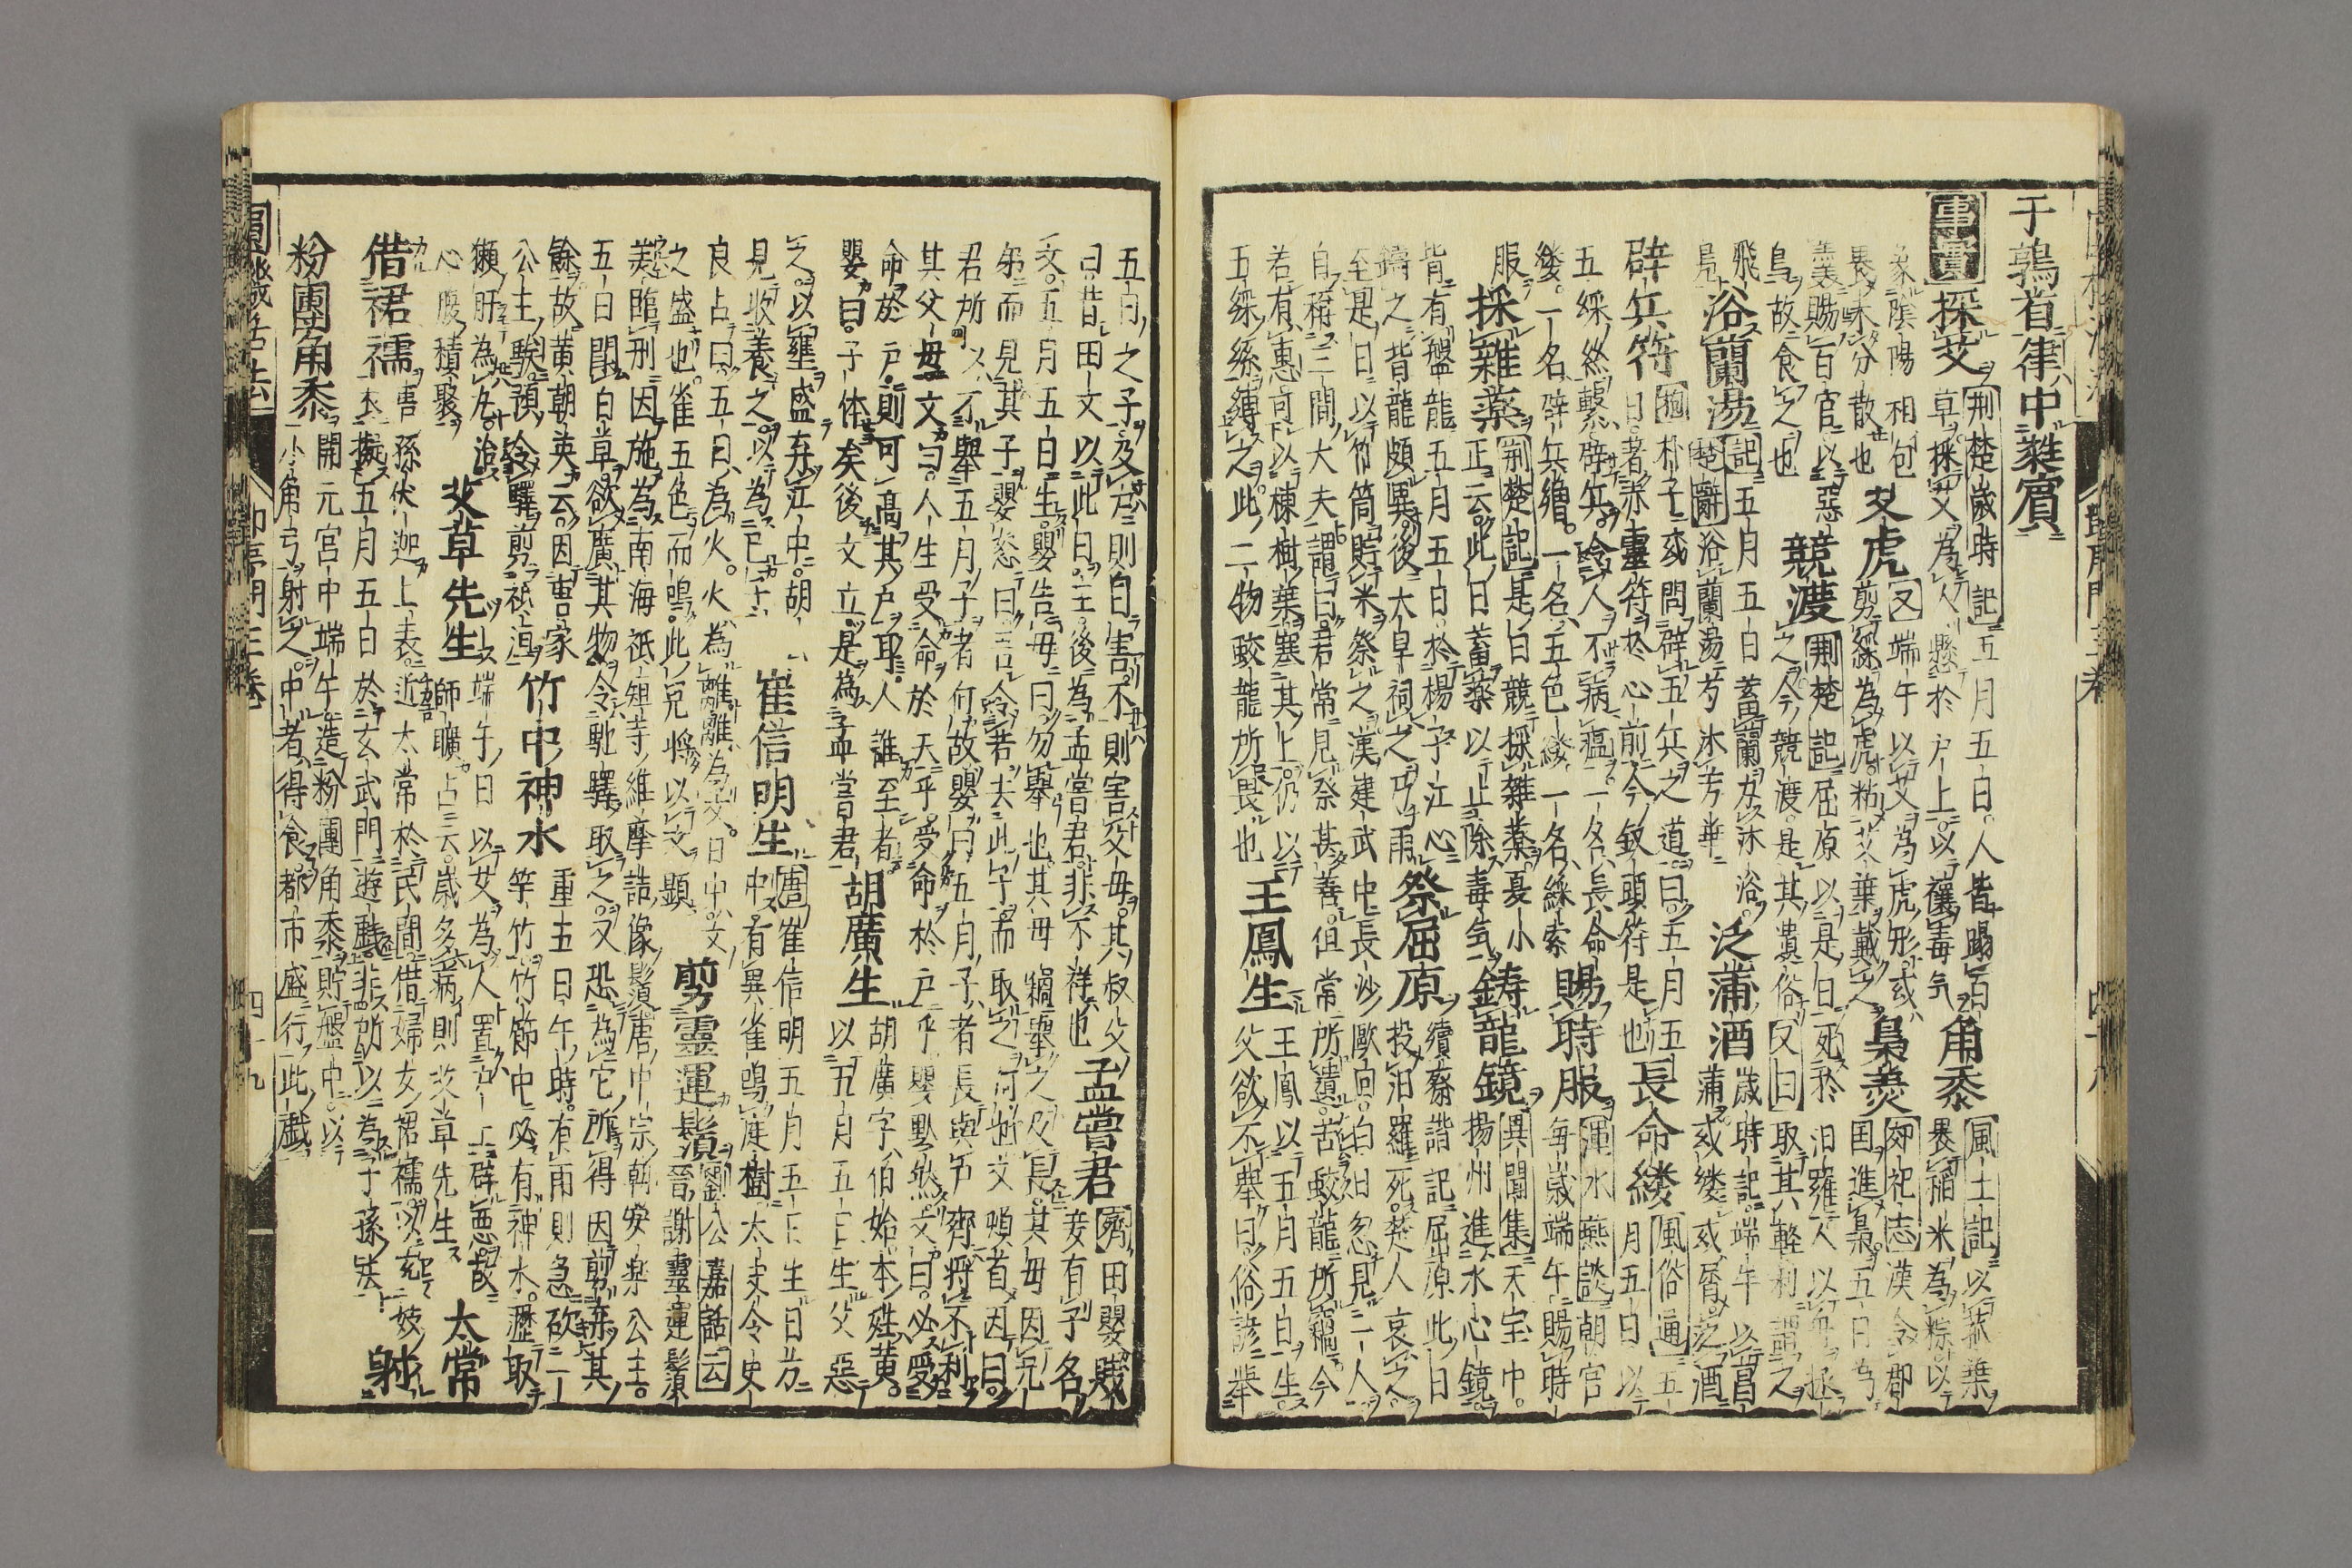 于鶉首律中蕤賓
事實 採艾 荊楚歲時記五月五日人皆蹋百
草採艾為人懸於戶上以禳毒气
角黍 風土記以菰葉
裹稻米為粽以
象陰陽相包
裹未分散也
艾虎 又端午以艾為虎形或
剪綵為虎粘艾葉戴之
梟羹 郊祀志漢令郡
国進梟五日為
羹賜百官以惡
鳥故食之也
競渡 荊楚記屈原以是日死於汨羅人以舟拯
之今競渡是其遺俗又曰取其軽利謂之
飛
鳬
浴蘭湯 記五月五日蓄蘭為沐浴
楚辭浴蘭湯兮沐芳華
泛蒲酒 歳時記端午以菖
蒲或縷或屑泛酒
辟兵符 抱朴子或問辟五兵之道曰五月五
日著赤靈符於心前今釵頭符是也
長命縷 風俗通五
月五日以
五綵絲繫臂辟兵令人不病瘟一名長命
縷一名辟兵繒一名五色縷一名綵索
賜時服 澠水燕談朝官
每歳端午賜時
服
採雜藥 荊楚記是日競採雜藥夏小
正云此日蓄藥以止除毒気
鋳龍鏡 異聞集天宝中
揚州進水心鏡
背有盤龍五月五日於楊子江心
鑄之背龍頗異後大旱祠之乃雨
祭屈原 續齋諧記屈原此日
投汨羅死楚人哀之
至是日以竹筒貯米祭之漢建武中長沙歐回白日忽見一人
自稱三閭大夫謂曰君常見祭甚善但常所遺苦蛟龍所竊今
若有惠可以楝樹葉塞其上仍以
五綵絲縛之此二物蛟龍所畏也
王鳳生 王鳳以五月五日生
父欲不舉曰俗諺舉
五日之子及戶則自害不則害父母其叔父
曰昔田文以此日生後為孟嘗君非不祥也
孟嘗君 齊田嬰賤
妾有子名
文五月五日生嬰告母曰勿舉也其母竊舉之及長其母因兄
弟而見其子嬰怒曰吾令若去此子而取之何也文頓首因曰
君所以不舉五月子者何故嬰曰五月子者長與戶齊将不利
其父母文曰人生受命於天乎受命於戶乎嬰默然文曰必受
命於戶則可高其戶耳人誰至者
嬰曰子休矣後文立是為孟嘗君
胡廣生 胡廣字伯始本姓黄
以五月五日生父惡
之以罋盛弃江中胡
見收養之以為己子
崔信明生 唐崔信明五月五日生日方
中有異雀鳴庭樹太史令史
良占曰五日為火火為離離為文日中文
之盛也雀五色而鳴此兒将以文顯
剪靈運鬚 劉公嘉話云
晉謝靈運鬚
美臨刑因施為南海祇洹寺維摩詰像鬚唐中宗朝安楽公主
五日鬪百草欲廣其物令馳驛取之又恐為它所得因剪弃其
餘故黄朝英云因書家
公主駁預令驛剪祇洹
竹中神水 重五日午時有雨則急砍一
竿竹竹節中必有神水瀝取
獺肝為丸治
心腹積聚
艾草先生 端午日以艾為人置戶上辟惡故
師曠占云歳多病則艾草先生
太常
借裙襦 唐孫伏迦上表近太常於民間借婦女裙襦以充妓
衣擬五月五日於玄武門遊戲非所以為子孫法
射
粉團角黍 開元宮中端午造粉團角黍貯盤中以
小角弓射之中者得食都市盛行此戯
圓機活法
節序門三卷
四十九